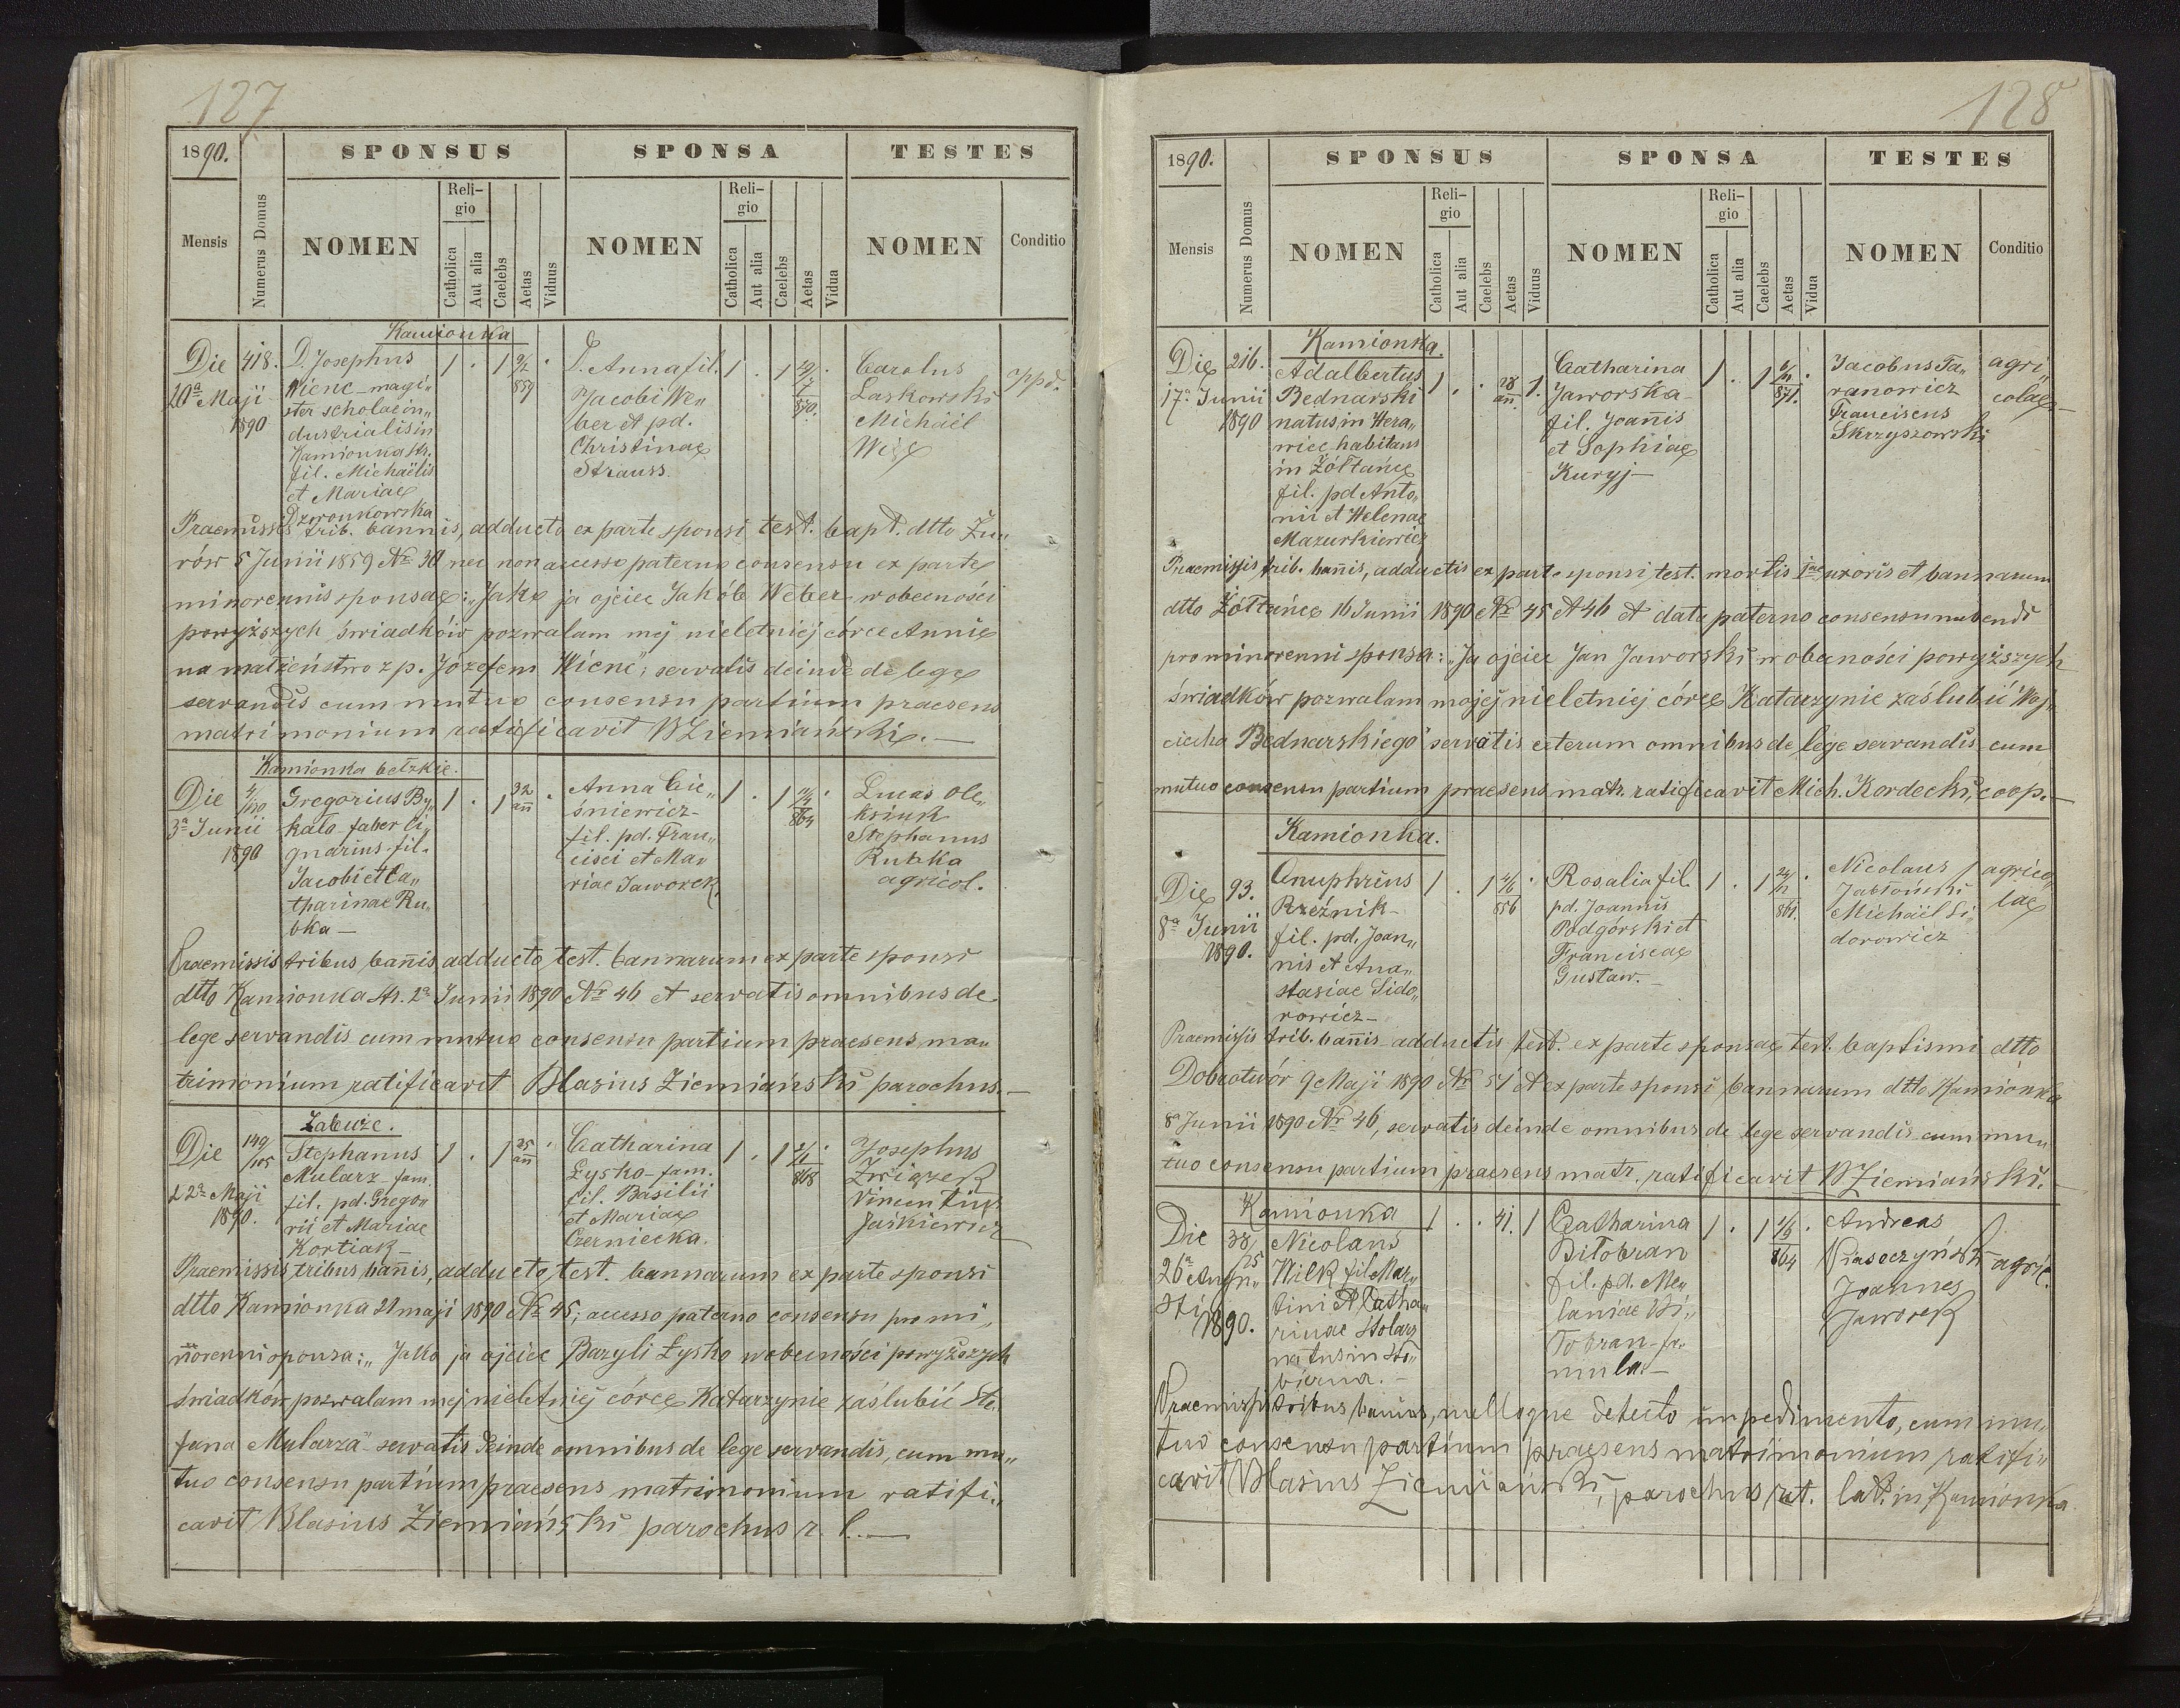 127
1890.
SPONSUS
SPONSA
TESTES
Mensis
Numerus Domus
NOMEN
Religio
Catholica
Aut alia
Caelebs
Aetas
Viduus
NOMEN
Religio
Catholica
Aut alia
Caelebs
Aetas
Vidua
NOMEN
Conditio
Kamionka
Die 20a Maji 1890
418.
D. Josephus
Wienc magi„
ster scholae in„
dustrialis in
Kamionka Str.
fil. Michaëlis
et Mariae
Dzwonkowska
1 . 1 9/2 859 .
D. Anna fil.
Jacobi We„
ber et pd.
Christinae
Strauss.
1 . 1 870. .
Carolus
Laskowski
Michaël
ppd.
Praemissis trib. bannis, adducto ex parte sponsi test. bapt. dtto Żu„
rów 5 Junii 1859 Nr 30 nec non accesso paterno consensu ex parte
minorennis sponsae: „Jako ja ojciec Jakób Weber w obecności
powyższych świadków pozwalam mej nieletniej córce Annie
na małżeństwo z p. Józefem Wienc"; servatis deinde de lege
servandis cum mutuo consensu partium praesens
matrimonium ratificavit BZiemiański.—
Kamionka bełzkie.
Die 3a Junii 1890
Gregorius By„
kało faber li„
gnarius fil.
Jacobi et Ca„
tharinae Ru„
bka—
1 . 1 32 añ .
Anna Ciс„
śniewicz
fil. pd. Fran„
cisci et Ma„
riae Jaworek
1 . 1 11/4 864 .
Lucas Ole„
ksiuk
Stephanus
Rubka
agricol.
Praemissis tribus bañis adducto test. bannarum ex parte sponsi
dtto Kamionka Str. 2a Junii 1890 Nr 46 et servatis omnibus de
lege servandis cum mutuo consensu partium praesens ma„
trimonium ratificavit Blasius Ziemiański parochus.—
Zabuże.
Die 22a Maji 1890.
149/105
Stephanus
Mularz fam.
fil. pd. Grego„
rii et Mariae
Kortiak—
1 . 1 25 añ .
Catharina
Łysko fam.
fil. Basilii
et Mariae
Czerniecka.
1 . 1 868 .
Josephus
Związek
Vincentius
Jaśkiewicz
Praemissis tribus bañis, adducto test. bannarum ex parte sponsi
dtto Kamionka 21 maji 1890 Nr 45; accesso paterno consensu pro mi„
norenni sponsa: „Jako ja ojciec Bazyli Łysko w obecności powyższych
świadków pozwalam mej nieletniej córce Katarzynie zaślubić Ste„
fana Mularza" servatis deinde omnibus de lege servandis, cum mu„
tuo consensu partium praesens matrimonium ratifi„
cavit Blasius Ziemiański parochus r. l.—
128
1890.
SPONSUS
SPONSA
TESTES
Mensis
Numerus Domus
NOMEN
Religio
Catholica
Aut alia
Caelebs
Aetas
Viduus
NOMEN
Religio
Catholica
Aut alia
Caelebs
Aetas
Vidua
NOMEN
Conditio
Kamionka.
Die 17a Junii 1890
216.
Adalbertus
Bednarski
natus in Wera„
wiec habitans
in Żółtańce
fil. pd Anto„
nii et Helenae
Mazurkiewicz
1 . . 28 añ. 1.
Catharina
Jaworska
fil. Joañis
et Sophiae
Kuryj—
1 . 1 871. .
Jacobus Ta„
ranowicz
Franciscus
Skrzyszowski
agri„
colae
Praemissis trib. bañis, adductis ex parte sponsi test. mortis Imae uxoris et bannarum
dtto Żółtańce 16 Junii 1890 Nr 45 et 46 et dato paterno consensu nubendi
pro minorenni sponsa: „Ja ojciec Jan Jaworski w obecności powyższych
świadków pozwalam mojej nieletniej córce Katarzynie zaślubić Woj„
ciecha Bednarskiego" servatis ceterum omnibus de lege servandis cum
mutuo consensu partium praesens matr. ratificavit Mich. Kordecki, coop.—
Kamionka.
Die 8a Junii 1890.
93.
Onuphrius
Rzeźnik—
fil. pd. Joan„
nis et Ana„
stasiae Sido„
rowicz—
1 . 1 856 .
Rosalia fil.
pd. Joannis
Podgórski et
Franciscae
Gustaw.—
1 . 1 861. .
Nicolaus
Jabłoński
Michaël Si
dorowicz
agrico„
lae
Praemissis trib. bañis adductis test. ex parte sponsae test. baptismi dtto
Dobrotwór 9 Maji 1890 Nr 51 et ex parte sponsi bannarum dtto Kamionka
8a Junii 1890 Nr 46, servatis deinde omnibus de lege servandis cum mu„
tuo consensu partium praesens matr. ratificavit BZiemiański.
Kamionka
Die 26a Augu„sti 1890.
38/25
Nicolaus
Wilk fil Mar„
tini et Catha„
rinae Stolarz
natus in
1 . . 41. 1
Catharina
Biłobran
fil. pd. Me„
laniae Bi„
łobran fa„
mula.—
1 . 1 1/9 864 .
Andreas
Piaseczyński
Joannes
Jaworek
agric.
Praemissis tribus bannis, nulloque detecto impedimento, cum mu„
tuo consensu partium praesens matrimonium ratifi„
cavit Blasius Ziemiański, parochus rit. lat. in Kamionka.